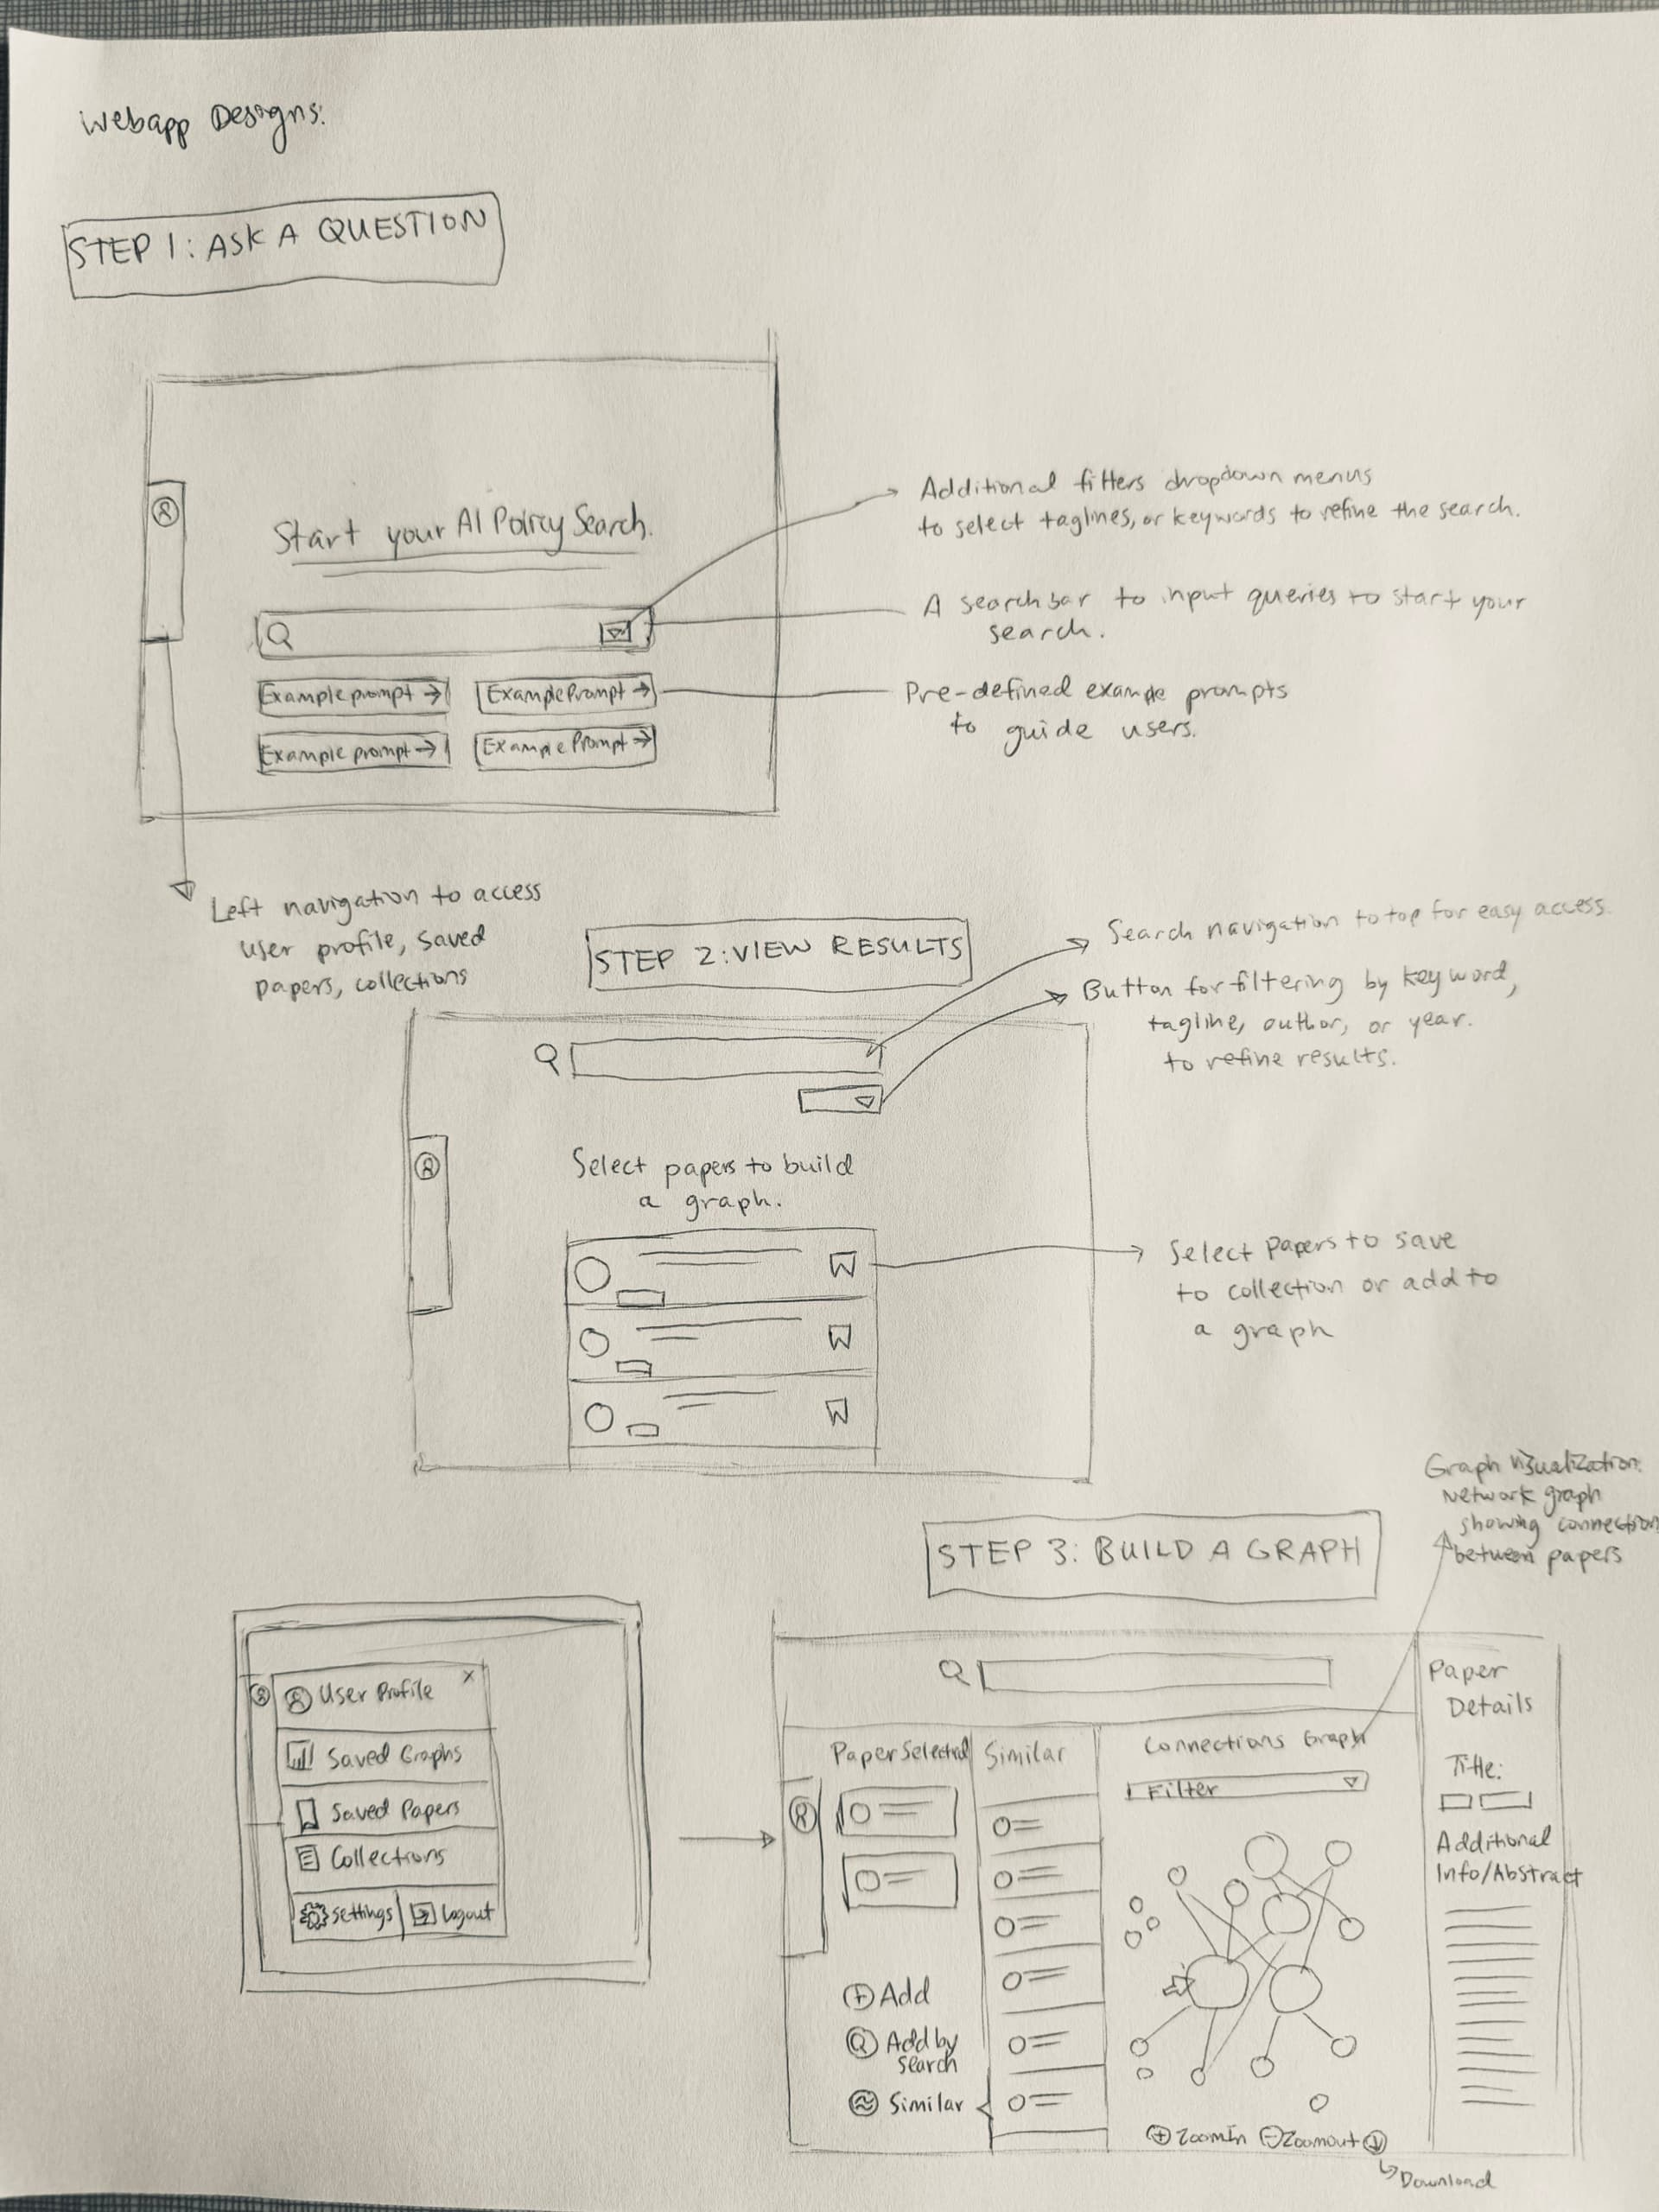 Webapp Designs:
STEP 1: ASK A QUESTION
Start your AI Policy Search.
Example prompt →
Example Prompt →
Example prompt →
Example Prompt →
Additional filters dropdown menus
to select taglines, or keywords to refine the search.
A searchbar to input queries to start your
search.
Pre-defined example prompts
to guide users.
Left navigation to access
user profile, saved
papers, collections
STEP 2: VIEW RESULTS
Search navigation to top for easy access.
Button for filtering by keyword,
tagline, author, or year.
to refine results.
Select papers to build
a graph.
Select papers to save
to collection or add to
a graph
STEP 3: BUILD A GRAPH
Graph Visualization:
Network graph
showing connection
between papers
User Profile x
Saved Graphs
Saved Papers
Collections
Settings
Logout
Paper Selected
Similar
Connections Graph
Filter
Add
Add by
search
Similar
Zoom In
Zoomout
Download
Paper
Details
Title:
Additional
Info/Abstract